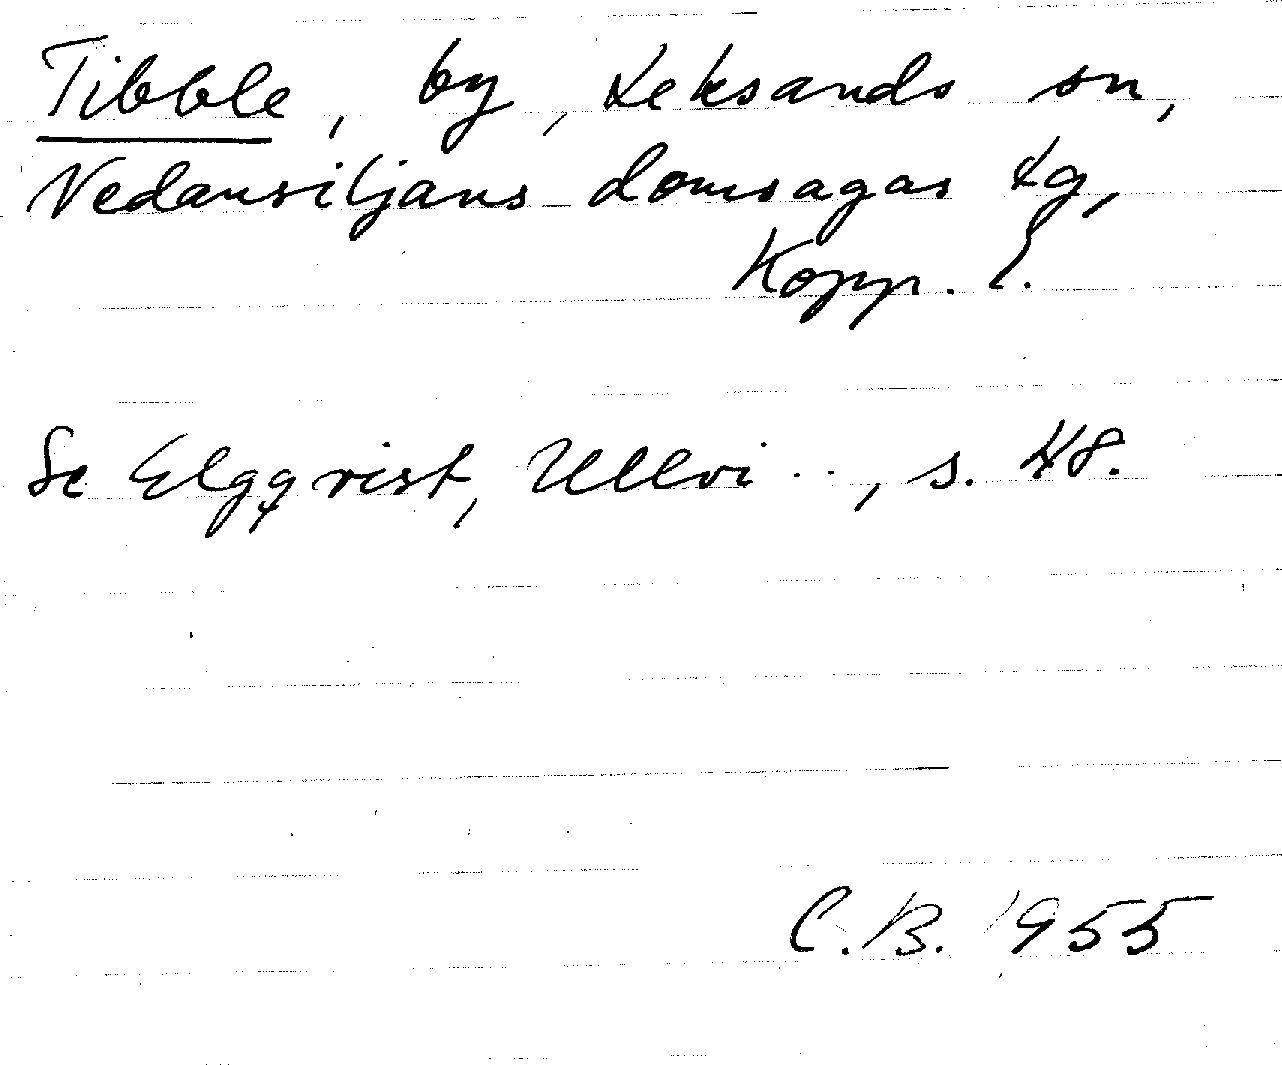 Tibble, by, Leksands sn,
Nedansiljans domsagas tg,
Kopp. l.
Se Elgqvist, Ullvi..., s. 48.
C.B. 1955